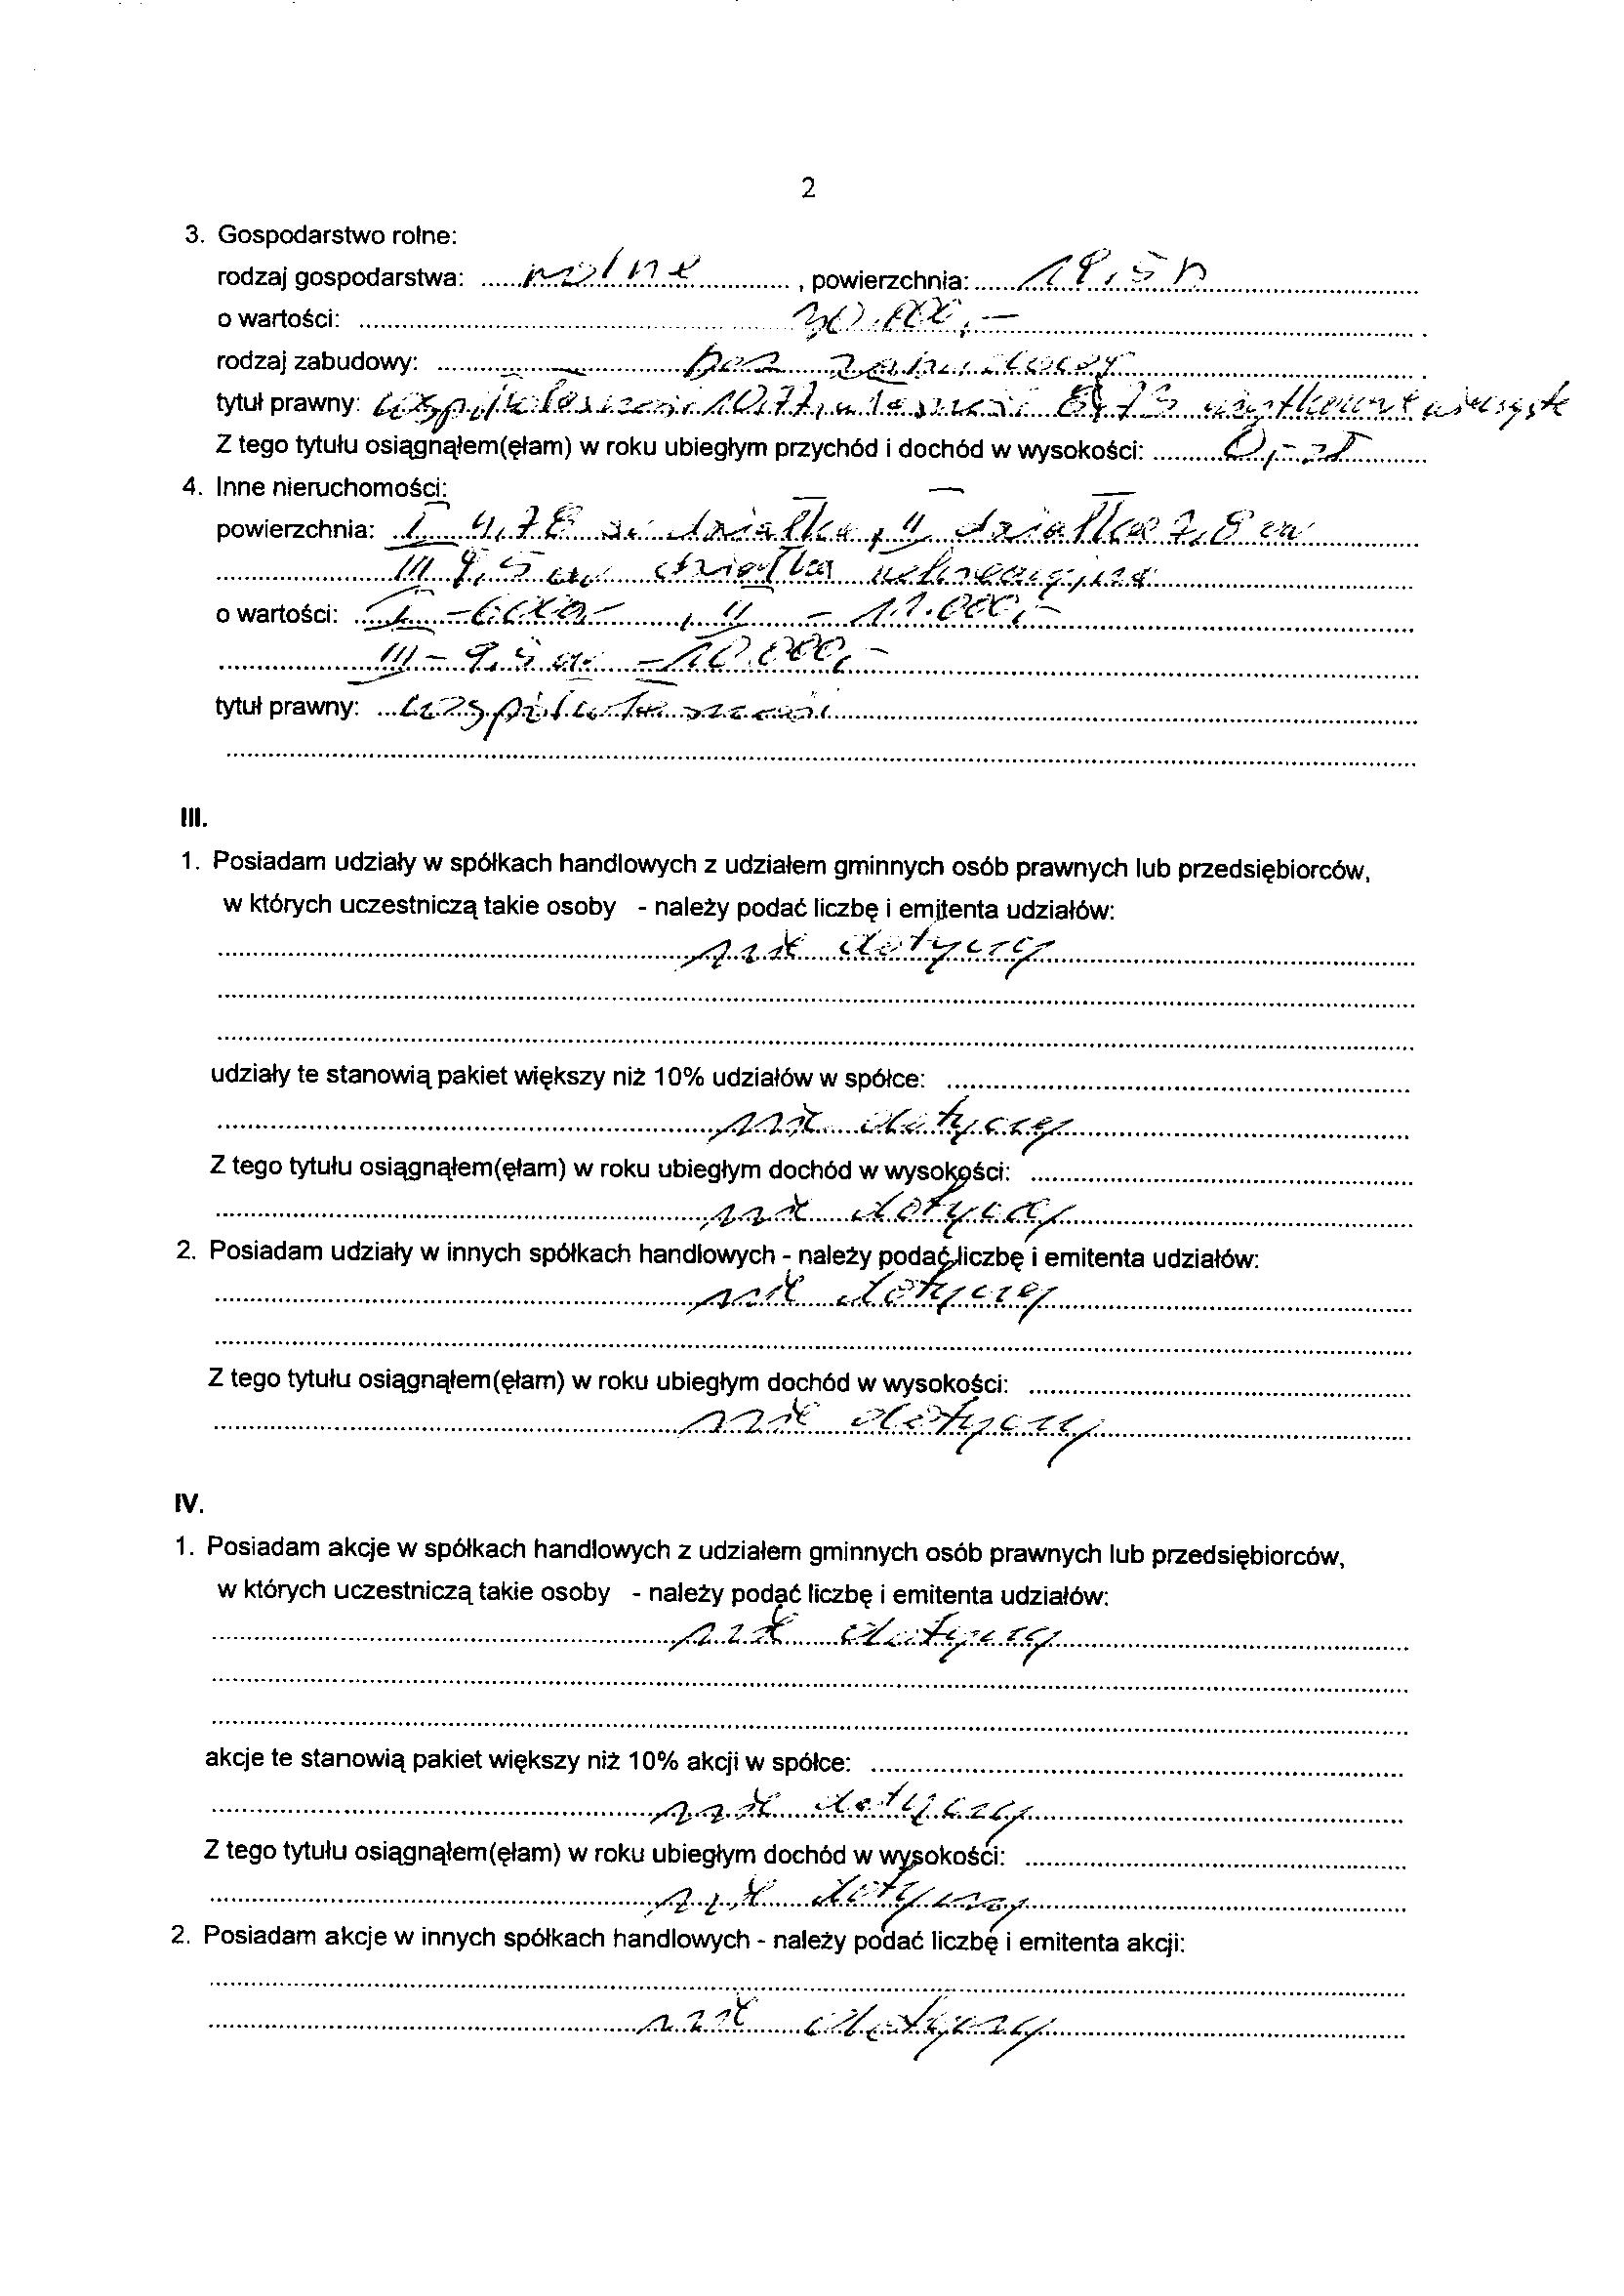 2
3. Gospodarstwo rolne:
rodzaj gospodarstwa: rolne, powierzchnia: 19,5 h
o wartości: 30.000,-
rodzaj zabudowy: bez zabudowy
tytuł prawny: współwłasność 10,77, własność 8,73 użytkowanie wieczyste
Z tego tytułu osiągnąłem(ęłam) w roku ubiegłym przychód i dochód w wysokości: 0,- zł
4. Inne nieruchomości:
powierzchnia: I 4,78 działka, II działka 7,8 ar
III 9,5 ar działka rekreacyjna
o wartości: I - 6.000,- , II - 11.000,-
III - 9,5 ar - 10.000,-
tytuł prawny: współwłasność
III.
1. Posiadam udziały w spółkach handlowych z udziałem gminnych osób prawnych lub przedsiębiorców,
w których uczestniczą takie osoby - należy podać liczbę i emitenta udziałów:
nie dotyczy
udziały te stanowią pakiet większy niż 10% udziałów w spółce:
nie dotyczy
Z tego tytułu osiągnąłem(ęłam) w roku ubiegłym dochód w wysokości:
nie dotyczy
2. Posiadam udziały w innych spółkach handlowych - należy podać liczbę i emitenta udziałów:
nie dotyczy
Z tego tytułu osiągnąłem(ęłam) w roku ubiegłym dochód w wysokości:
nie dotyczy
IV.
1. Posiadam akcje w spółkach handlowych z udziałem gminnych osób prawnych lub przedsiębiorców,
w których uczestniczą takie osoby - należy podać liczbę i emitenta udziałów:
nie dotyczy
akcje te stanowią pakiet większy niż 10% akcji w spółce:
nie dotyczy
Z tego tytułu osiągnąłem(ęłam) w roku ubiegłym dochód w wysokości:
nie dotyczy
2. Posiadam akcje w innych spółkach handlowych - należy podać liczbę i emitenta akcji:
nie dotyczy